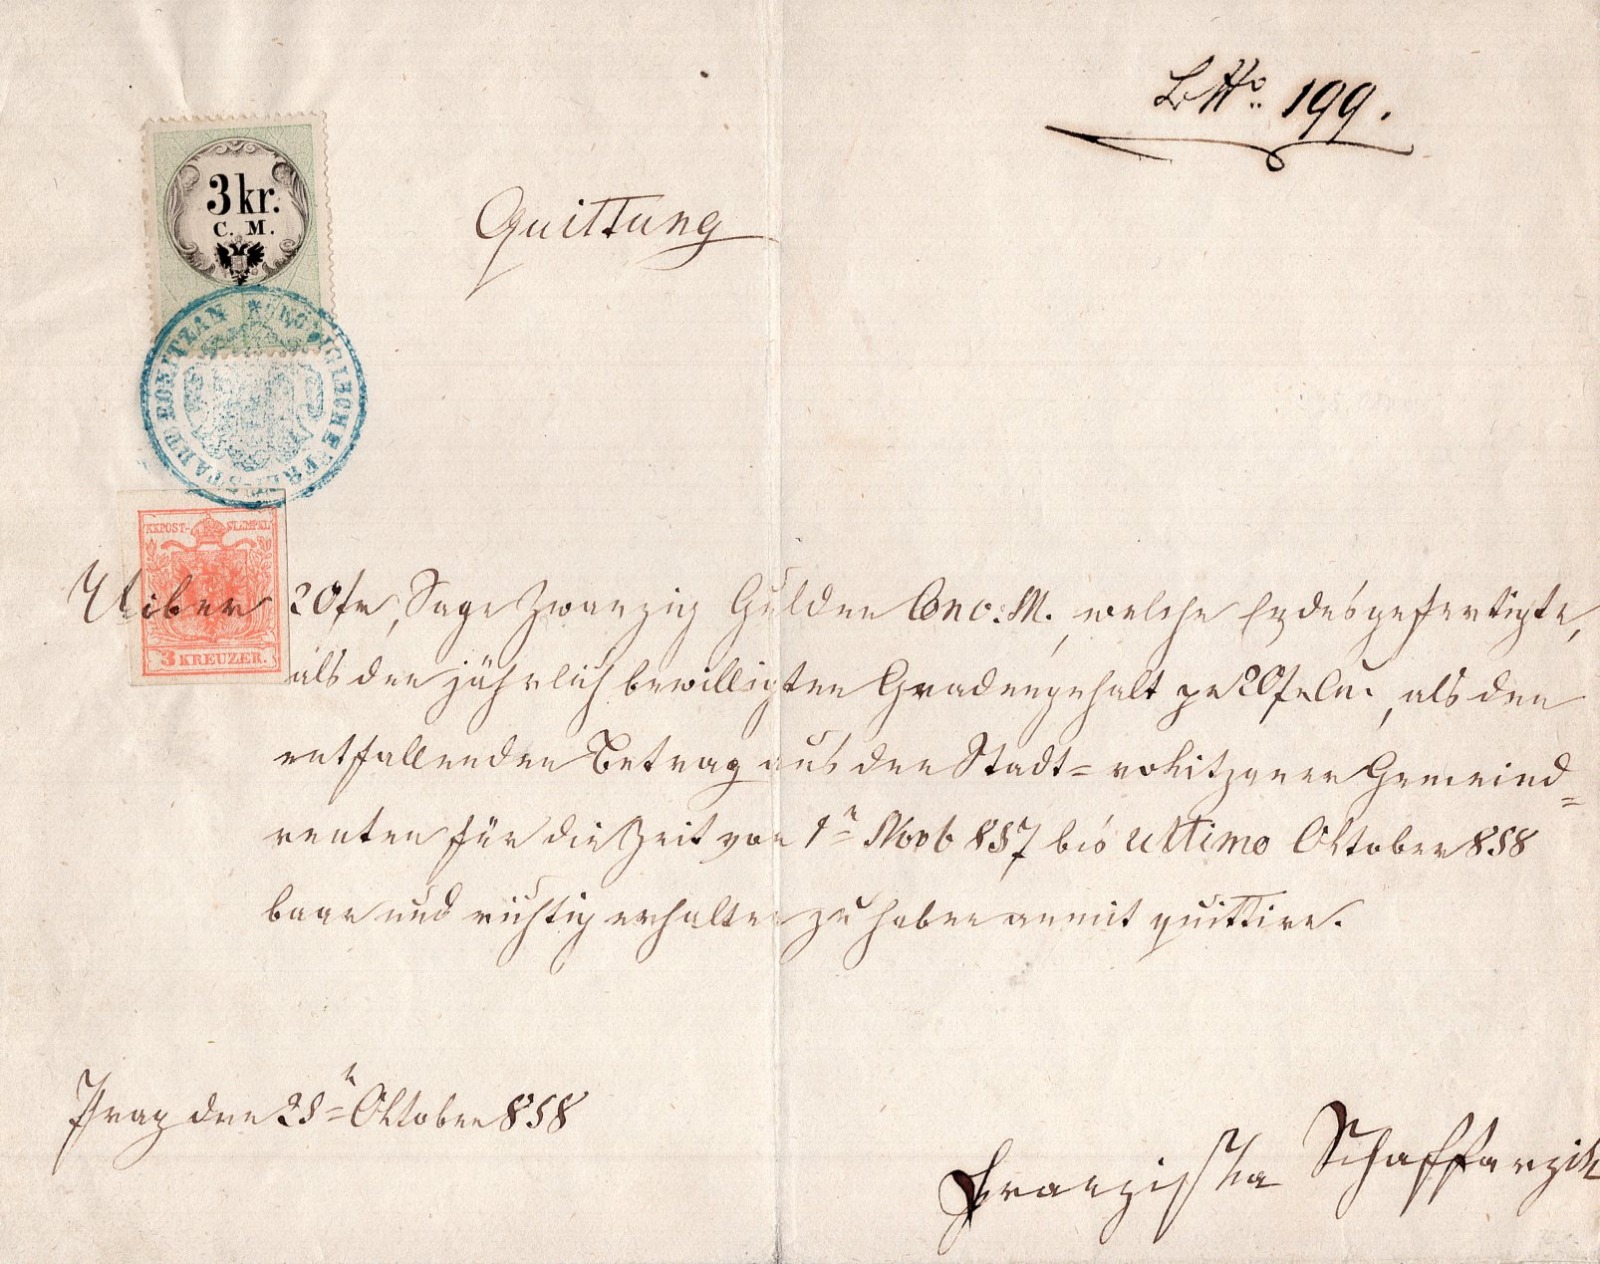 No. 199.
3 kr.
C. M.
Quittung
* KÖNIGLICHE FREI-STADT ROKITZAN
KKPOST-STEMPEL
3 KREUZER.
Uiber 20 fr, Sage Zwanzig Gulden Conv: M., welche Endesgefertigte,
als den jährlich bewilligten Gnadengehalt pr 20 fr CM., als den
entfallenden Betrag aus den Stadt= rokitzaner Gemeind=
renten für die Zeit von 1n Novb 857 bis ultimo Oktober 858
baar und richtig erhalten zu haben anmit quittire.
Prag den 28n Oktober 858
Franziska Schaffarzik